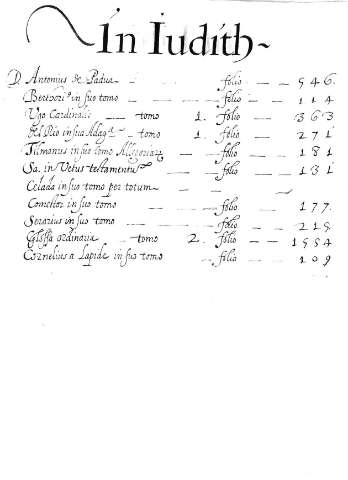 In Iudith
D. Antonius de Padua folio 546.
in suo tomo folio 114
Ugo Cardinalis tomo 1. folio 363
del Rio in sua Adagˢ tomo 1. folio 271
Tilmanus in suo tomo Allegoriarũ folio 181
Sa. in Vetus testamentũ folio 131
Celada in suo tomo per totum
in suo tomo folio 177.
Serarius in suo tomo folio 215
Glossa ordinaria tomo 2. folio 1554
Cornelius a Lapide in suo tomo folio 109